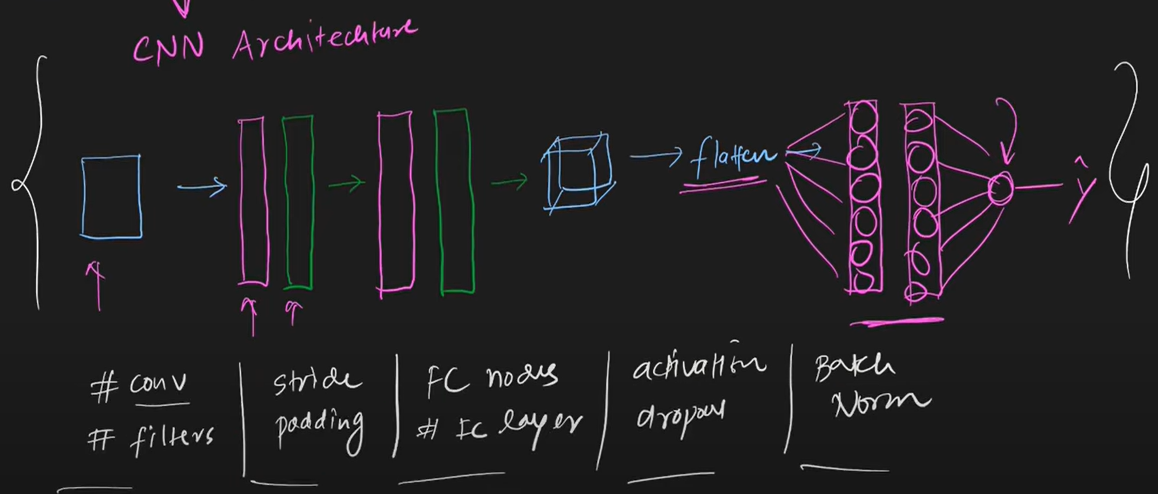 CNN Architechture
flatten
ŷ
# conv
# filters
stride
padding
FC nodes
# FC layer
activation
dropout
Batch
Norm